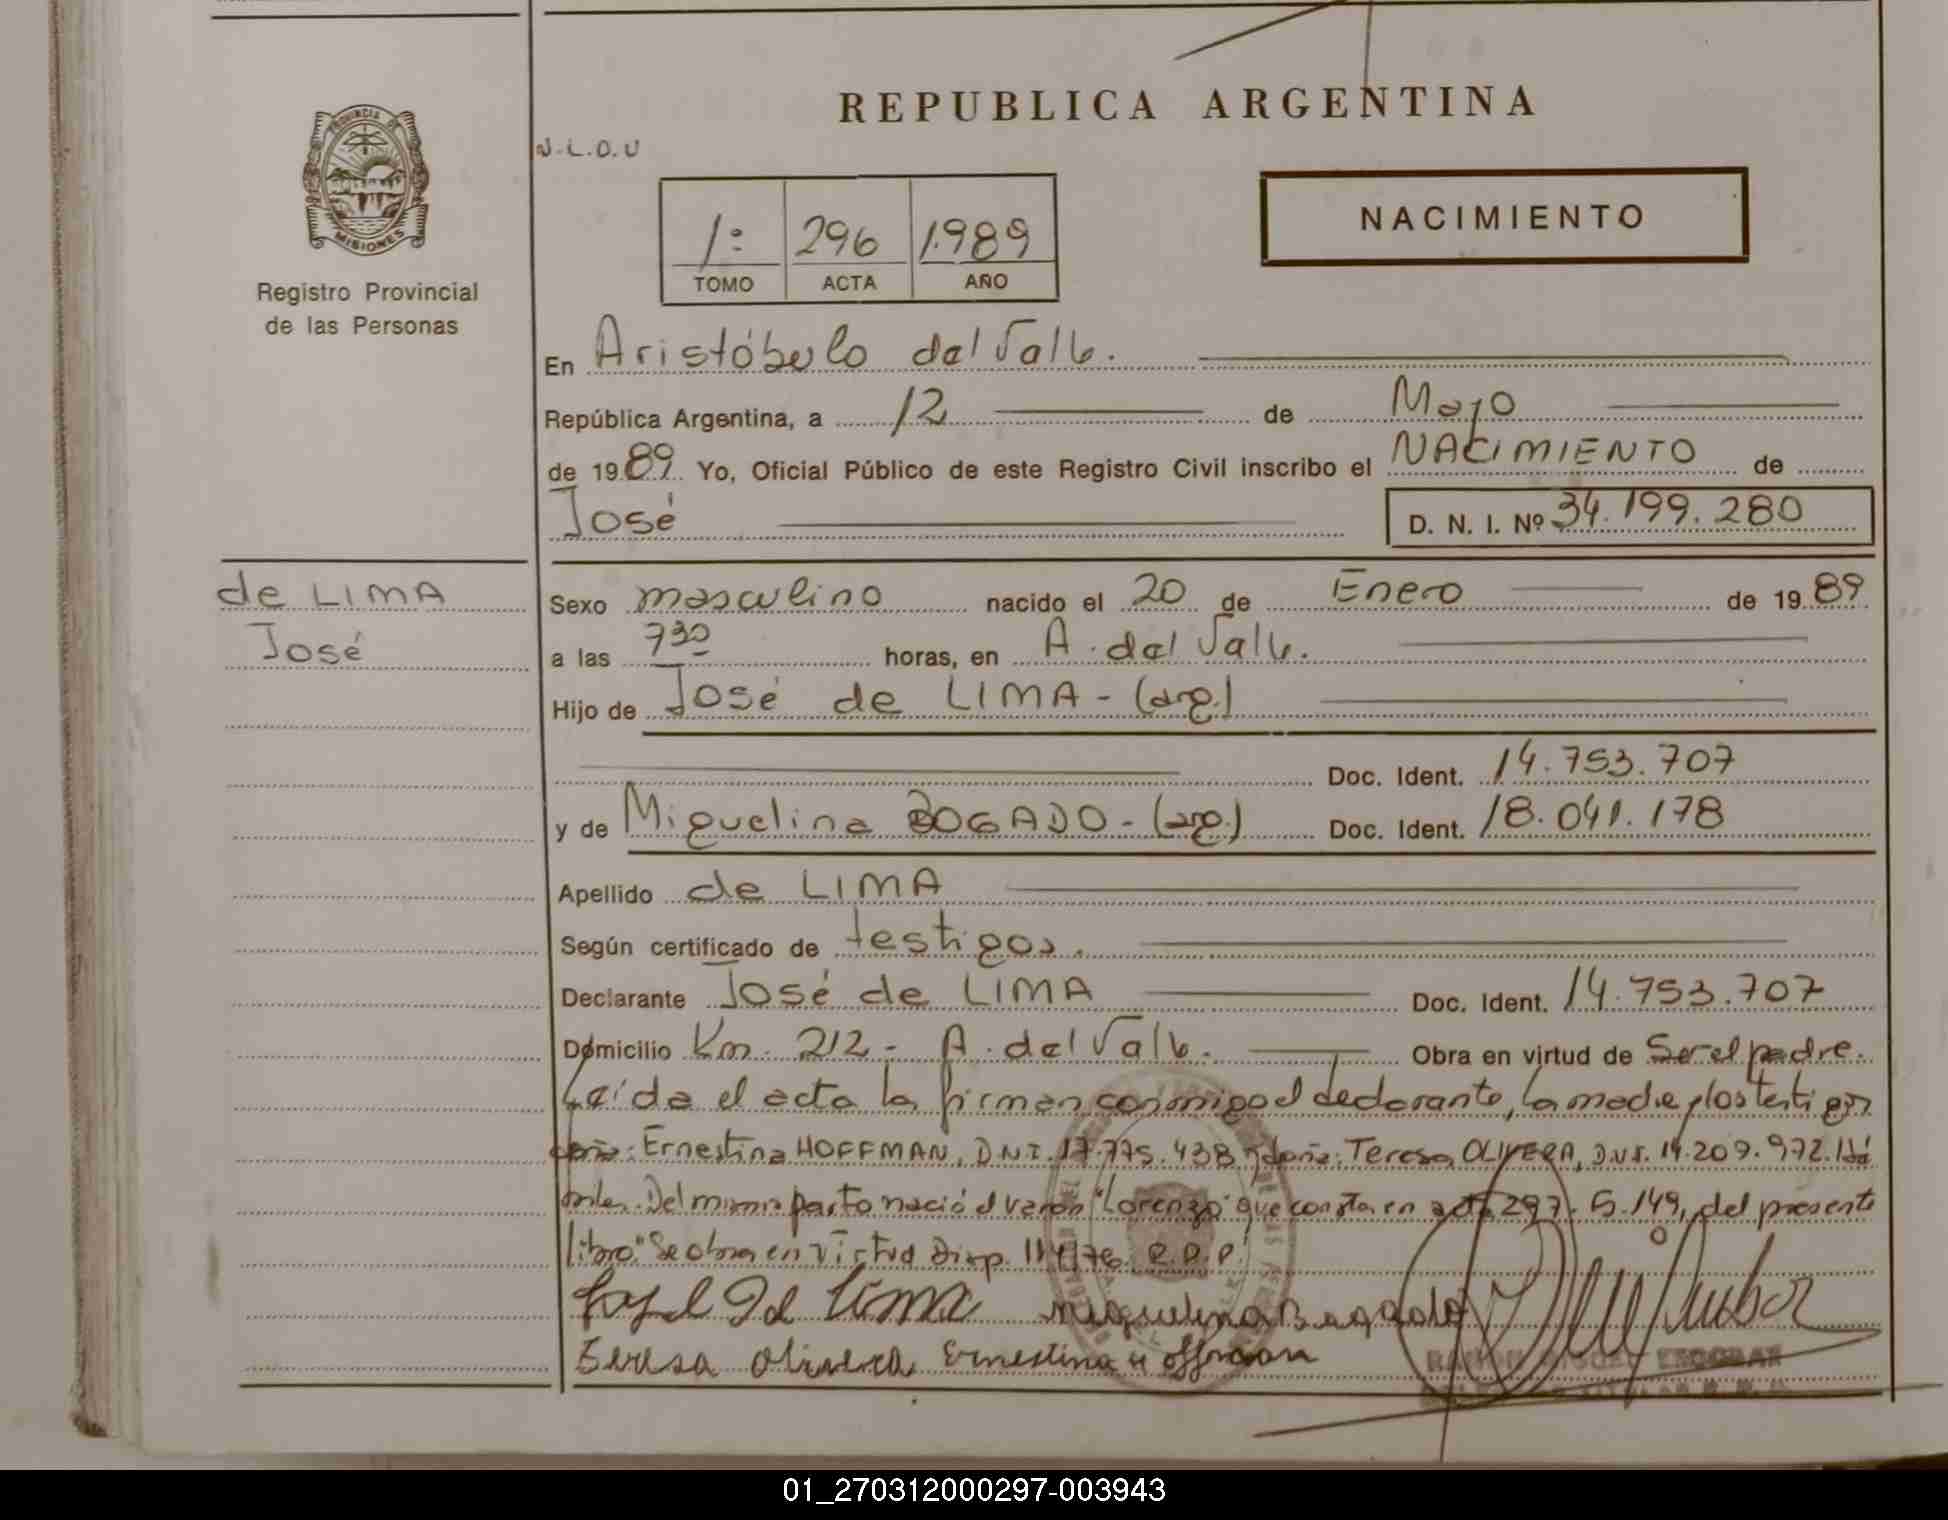 REPUBLICA ARGENTINA
PROVINCIA DE
MISIONES
Registro Provincial
de las Personas
N.L.O.U
1: 296 1.989
TOMO ACTA AÑO
NACIMIENTO
En Aristóbulo del Valle.
República Argentina, a 12 de Mayo
de 1989 Yo, Oficial Público de este Registro Civil inscribo el NACIMIENTO de
José D. N. I. Nº 34.199.280
de LIMA
José
Sexo masculino nacido el 20 de Enero de 1989
a las 730 horas, en A. del Valle.
Hijo de José de LIMA - (arg.)
Doc. Ident. 14.753.707
y de Miguelina BOGADO - (arg.) Doc. Ident. 18.041.178
Apellido de LIMA
Según certificado de testigos.
Declarante José de LIMA Doc. Ident. 14.753.707
Domicilio Km. 212 - A. del Valle. Obra en virtud de Ser el padre.
Leída el acta la firman conmigo el declarante, la madre y los testigos
doña: Ernestina HOFFMAN, D.N.I. 17.775.438 y doña: Teresa OLIVERA, D.N.I. 14.209.972.
Del mismo parto nació el varón "Lorenzo" que consta en acta 297. F. 149, del presente
libro." Se obra en virtud Disp. 114/76. R.P.P.
de Lima Miguelina Bogado
Teresa Olivera Ernestina Hoffman
RAMON MIGUEL ESCOBAR
01_270312000297-003943